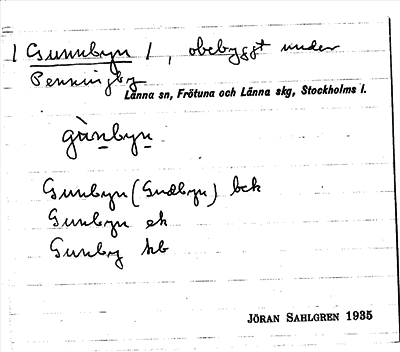 / Gunnbyn /, obebyggt under
Penningby
Länna sn, Frötuna och Länna skg, Stockholms l.
gùnbyn
Gunbyn (Gudbyn) bck
Gunbyn ek
Gunby hb
JÖRAN SAHLGREN 1935